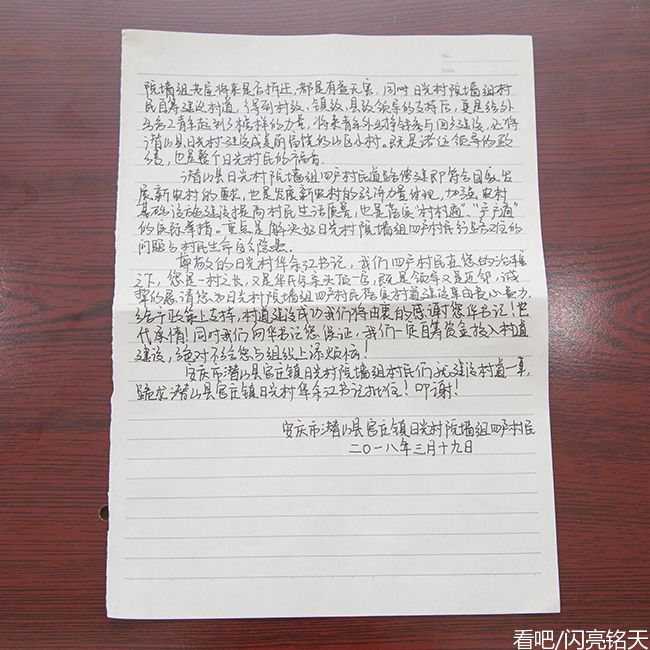 No.
Date.
院墙组老屋将来是否拆迁,都是有益无害。同时日光村院墙组村
民自筹建设村道,得到村级、镇级、县级领导的支持后,更是给外
出务工青年起到了榜样的力量,将来青年外出将转参与回乡建设,也将
潜山县日光村建设成美丽富饶的山区小村。既是诸位领导的政
绩,也是整个日光村民的福音。
潜山县日光村院墙组四户村民道路修建即符合国家发
展新农村的要求,也是发展新农村的经济力量体现,加强农村
基础设施建设提高村民生活质量,也是落实"村村通"、"户户通"
的实际举措。更是解决好日光村院墙组四户村民行路難的
问题与村民生命安全隐患。
尊敬的日光村华余江书记,我们四户村民在您的治理
之下,您是一村之长,又是华氏宗亲头顶一片,既是领导又是近邻,诚
挚的恳请您为日光村院墙组四户村民落实村道建设奉献良心与力,
给予政策上支持,村道建设成功我们将由衷的感谢您华书记!世
代承情!同时我们向华书记您保证,我们一定自筹资金投入村道
建设,绝对不给您与组织上添烦恼!
安庆市潜山县官庄镇日光村院墙组村民们就建设村道一事,
跪求潜山县官庄镇日光村华余江书记批住!叩谢!
安庆市潜山县官庄镇日光村院墙组四户村民
二〇一八年三月十九日
看吧/闪亮铭天